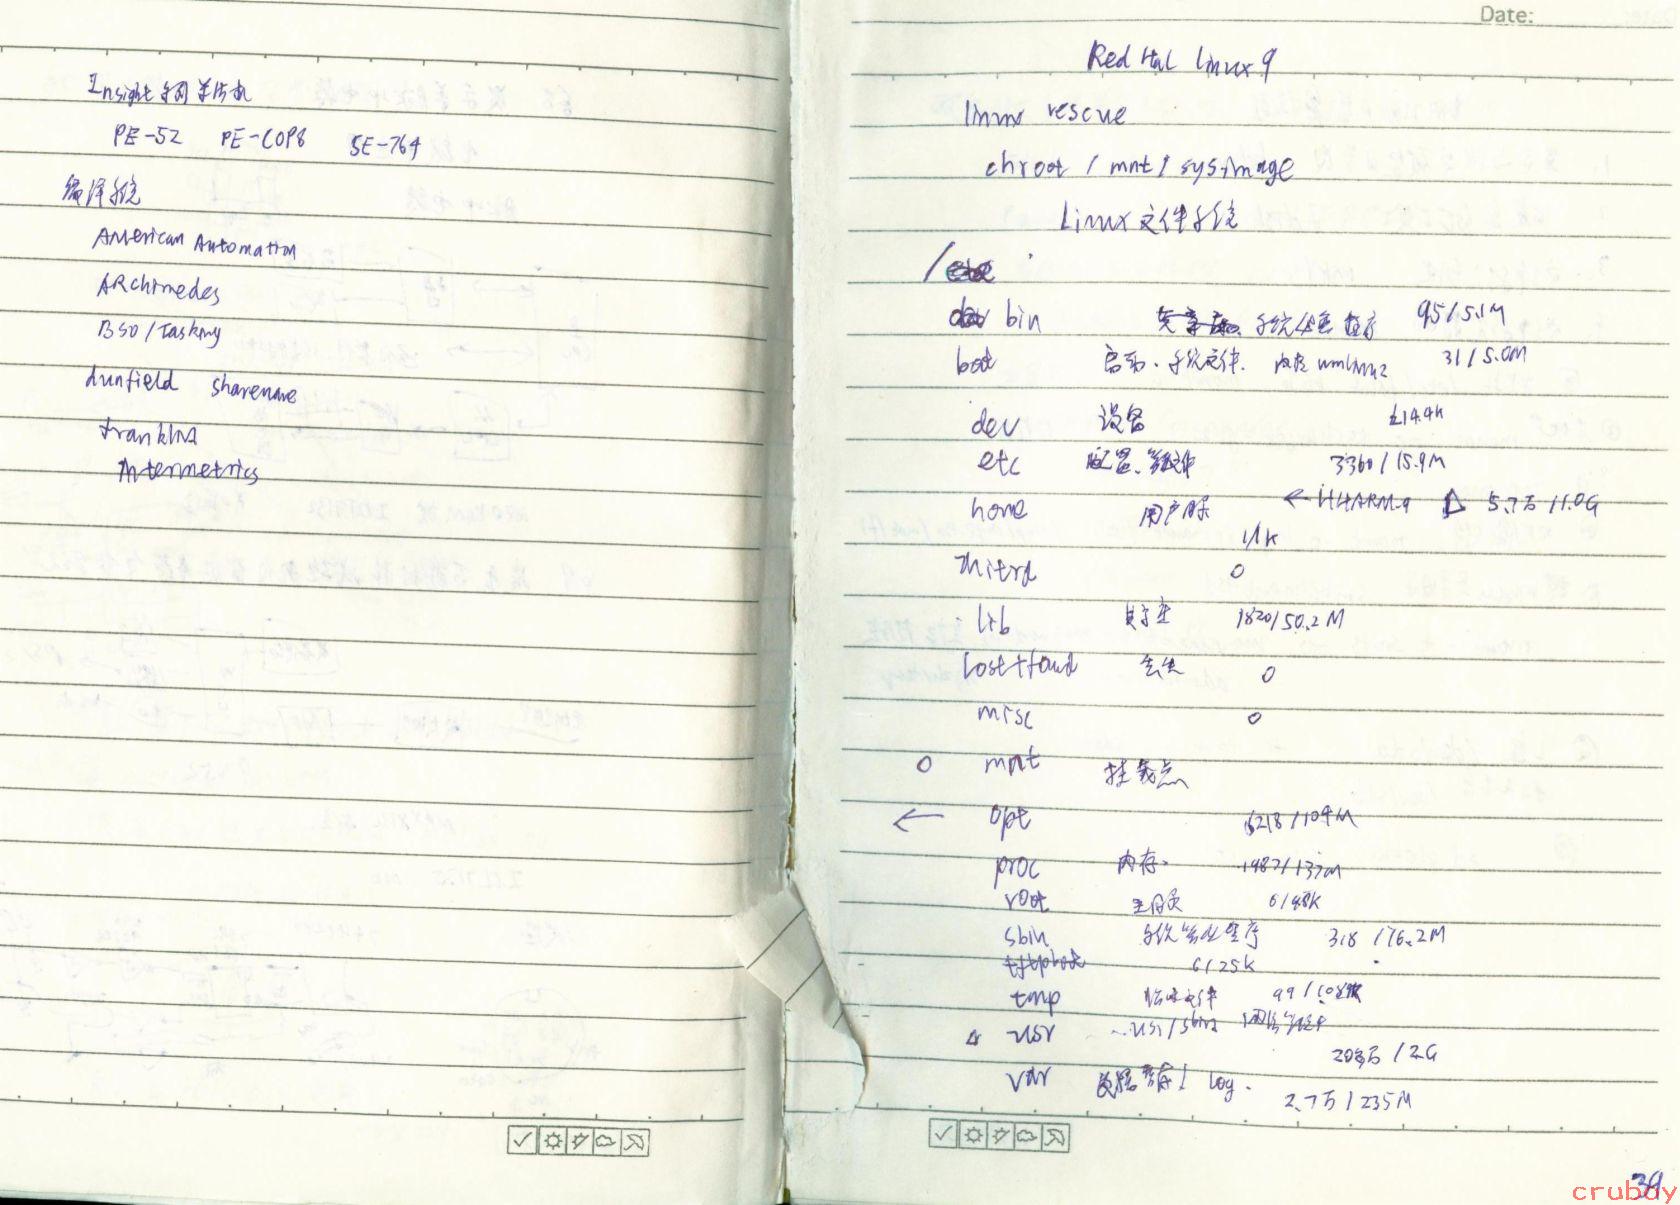 Insight 单片机
PE-52 PE-COP8 SE-764
编译系统
American Automation
ARchimedes
BSO/Tasking
dunfield shareware
franklin
Intermetrics
Date:
Red Hat linux 9
linux rescue
chroot /mnt/sysimage
Linux文件系统
/
bin 系统 程序 95/5.1M
boot 启动、系统文件. 31/5.0M
dev 设备
etc 配置、 3360/15.9M
home 用户 ← HHARM9 Δ 5.7万/1.0G
1/1K
initrd 0
lib 1820/50.2M
lost+found 丢失 0
misc 0
0 mnt 挂载点
← opt 6218/104M
proc 内存. 1482/137M
root 主目录 6/48K
sbin 系统管理程序 318/76.2M
tftpboot 6/25K
tmp 临时文件 99/
Δ usr usr/sbin
20多万/2G
var 数据 log.
2.7万/235M
39
cruboy